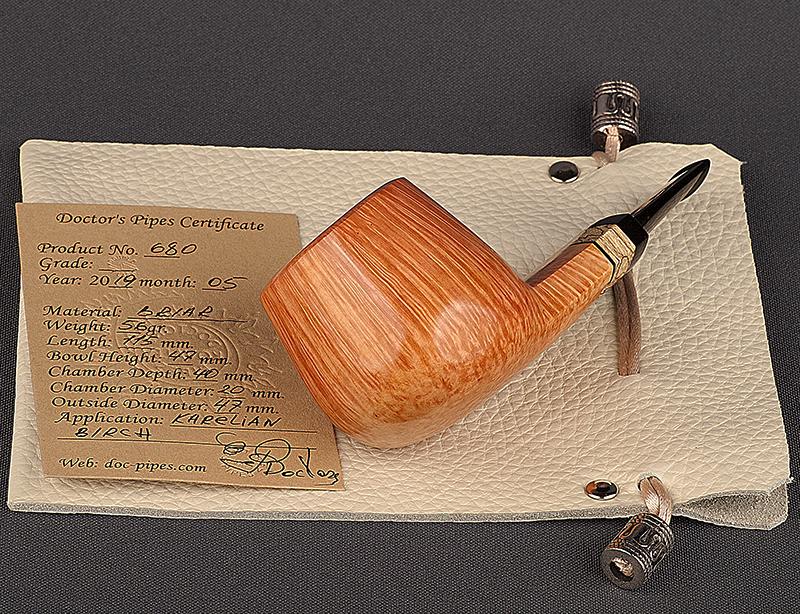 Doctor's Pipes Certificate
Product No. 680
Grade:
Year: 2019 month: 05
Material: BRIAR
Weight: 56gr.
Length: 115 mm.
Bowl Height: 49 mm.
Chamber Depth: 40 mm
Chamber Diameter: 20 mm.
Outside Diameter: 47 mm.
Application: KARELIAN
BIRCH
Web: doc-pipes.com